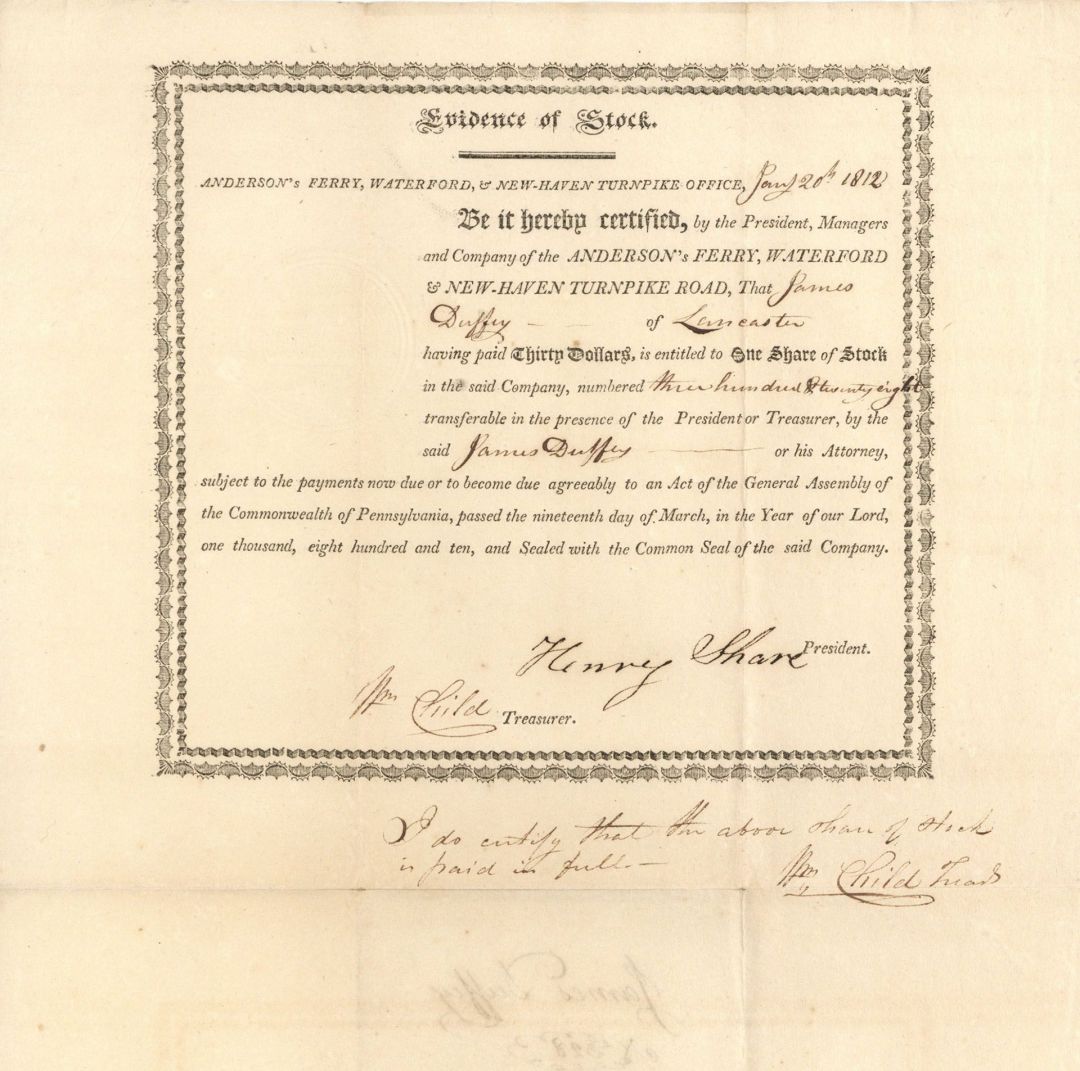 Evidence of Stock.
ANDERSON's FERRY, WATERFORD, & NEW-HAVEN TURNPIKE OFFICE, Jany 20th 1812
Be it hereby certified, by the President, Managers
and Company of the ANDERSON's FERRY, WATERFORD
& NEW-HAVEN TURNPIKE ROAD, That James
Duffey — — of Lancaster
having paid Thirty Dollars, is entitled to One Share of Stock
in the said Company, numbered three hundred & twenty eight
transferable in the presence of the President or Treasurer, by the
said James Duffey — or his Attorney,
subject to the payments now due or to become due agreeably to an Act of the General Assembly of
the Commonwealth of Pennsylvania, passed the nineteenth day of March, in the Year of our Lord,
one thousand, eight hundred and ten, and Sealed with the Common Seal of the said Company.
Henry Share President.
Wm Child Treasurer.
I do certify that the above share of stock
is paid in full —
Wm Child Treas
James Duffey